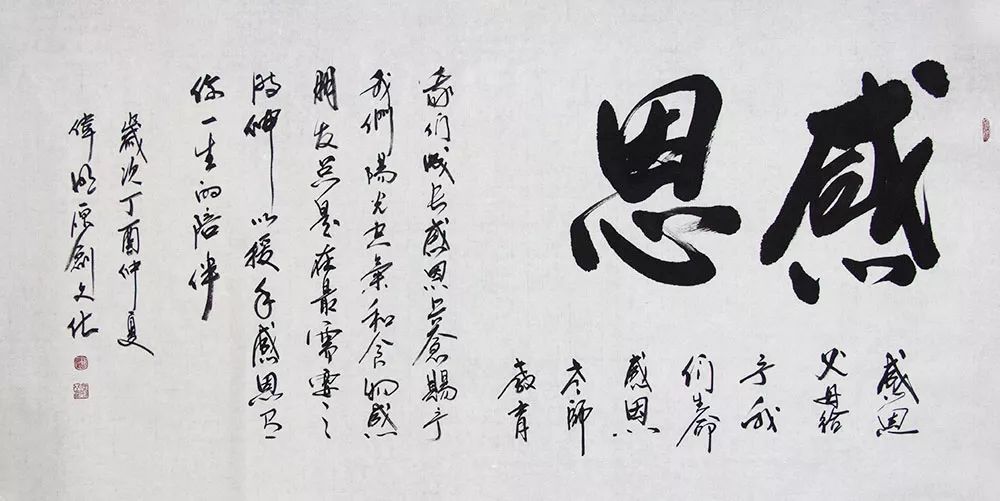 感恩
感恩
父母给
予我
们生命
感恩
老师
教育
我们成长感恩上蒼賜予
我們陽光空氣和食物感
朋友总是在最需要之
時伸以援手感恩有
你一生的陪伴
歲次丁酉仲夏
偉明原創文化